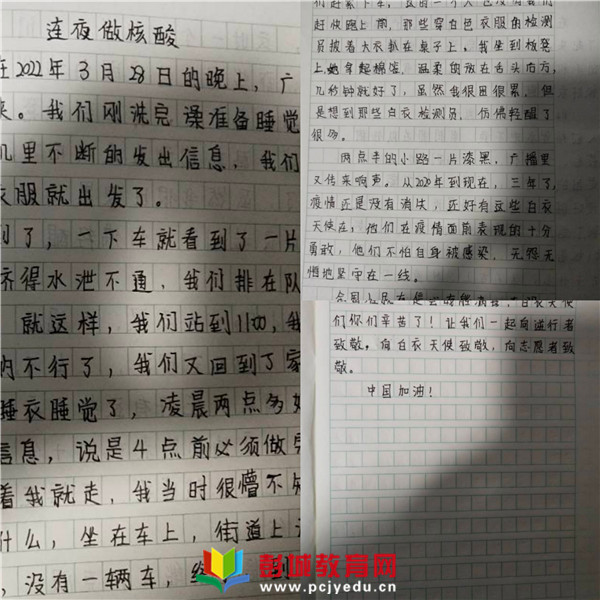 连夜做核酸
在2022年3月28日的晚上,广
来。我们刚洗完澡准备睡觉
机里不断的发出信息,我们
衣服就出发了。
到了,一下车就看到了一片
挤得水泄不通,我们排在队
就这样,我们站到1100,我
内不行了,我们又回到了家
睡衣睡觉了,凌晨两点多好
信息,说是4点前必须做完
着我就走,我当时很懵不知
什么,坐在车上,街道上
,没有一辆车,
们赶紧下车,
赶快跑上前,那些穿白色衣服的检测
员披着大衣趴在桌子上。我坐到板凳
上她拿起棉签,温柔的放在舌头右方,
几秒钟就好了,虽然我很困很累,但
是想到那些白衣检测员,仿佛轻醒了
很多。
两点半的小路一片漆黑,广播里
又传来响声。从2020年到现在,三年了,
疫情还是没有消失,还好有这些白衣
天使在,他们在疫情面前表现的十分
勇敢,他们不怕自身被感染,无怨无
悔地坚守在一线。
们你们辛苦了!让我们一起向逆行者
致敬,向白衣天使致敬,向志愿者致
敬。
中国加油!
彭城教育网
www.pcjyedu.cn